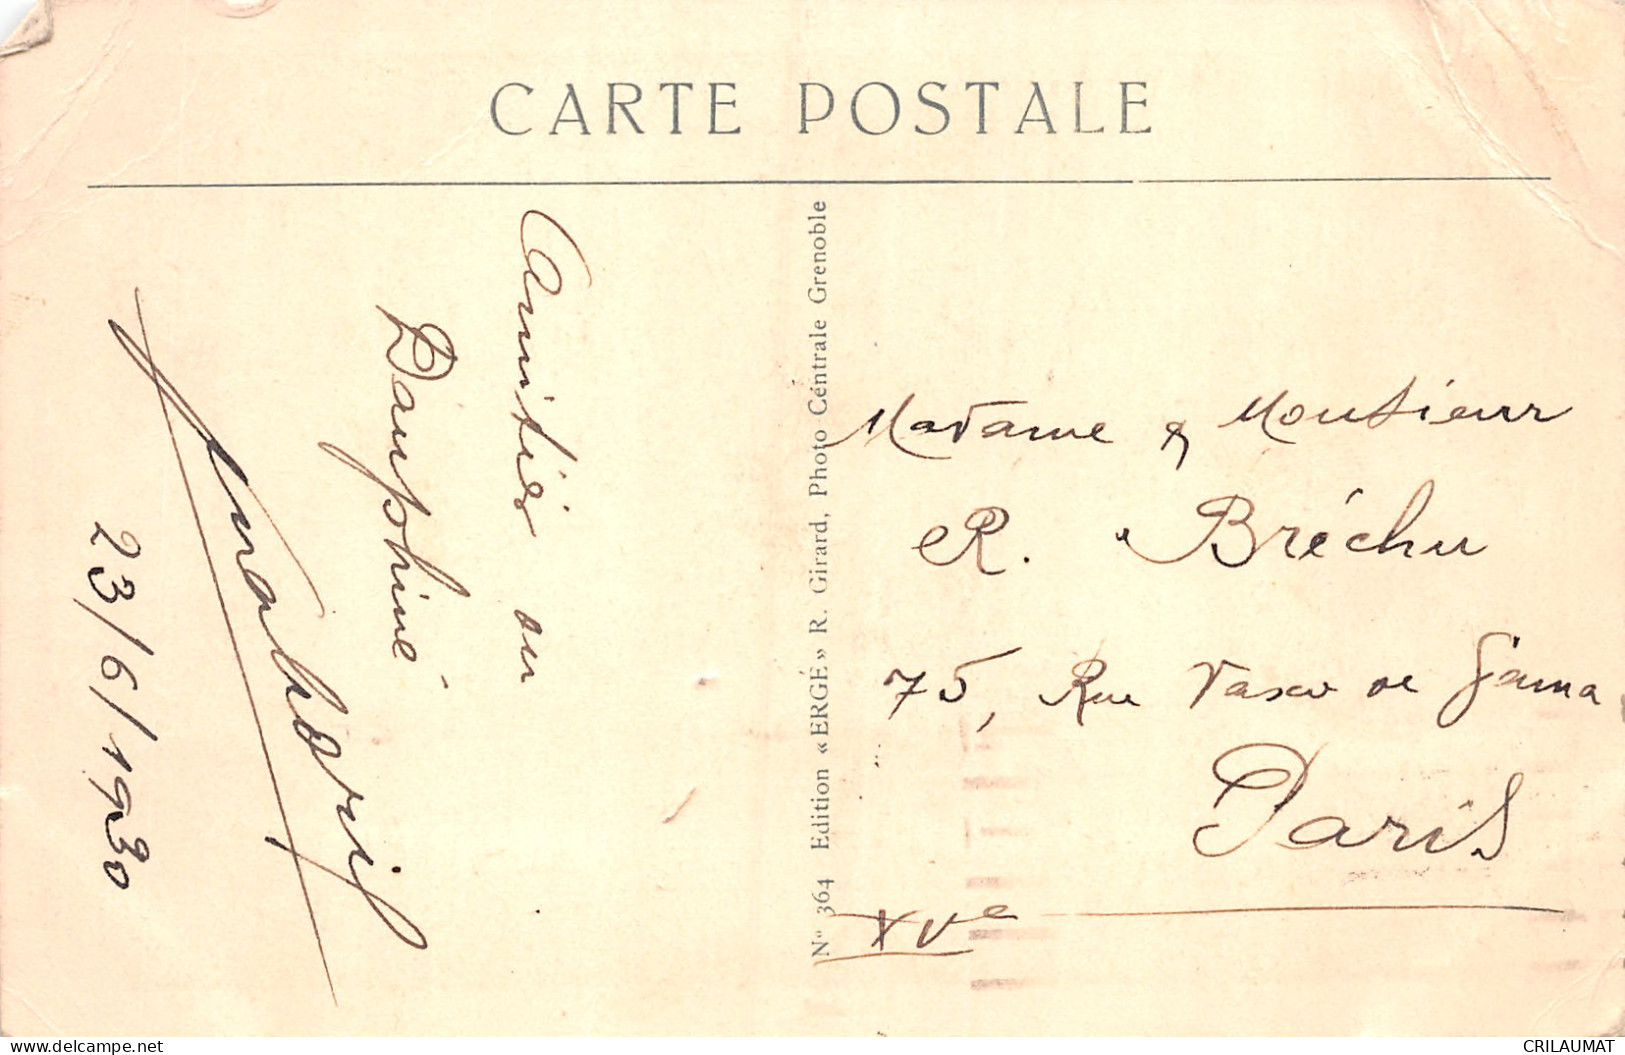 CARTE POSTALE
Amitiés du
Dauphiné
23/6/1930
N° 364 Edition «ERGÉ» R. Girard, Photo Centrale Grenoble
Madame & Monsieur
R. Bréchu
75, Rue Vasco de Gama
Paris
XVe
www.delcampe.net
CRILAUMAT